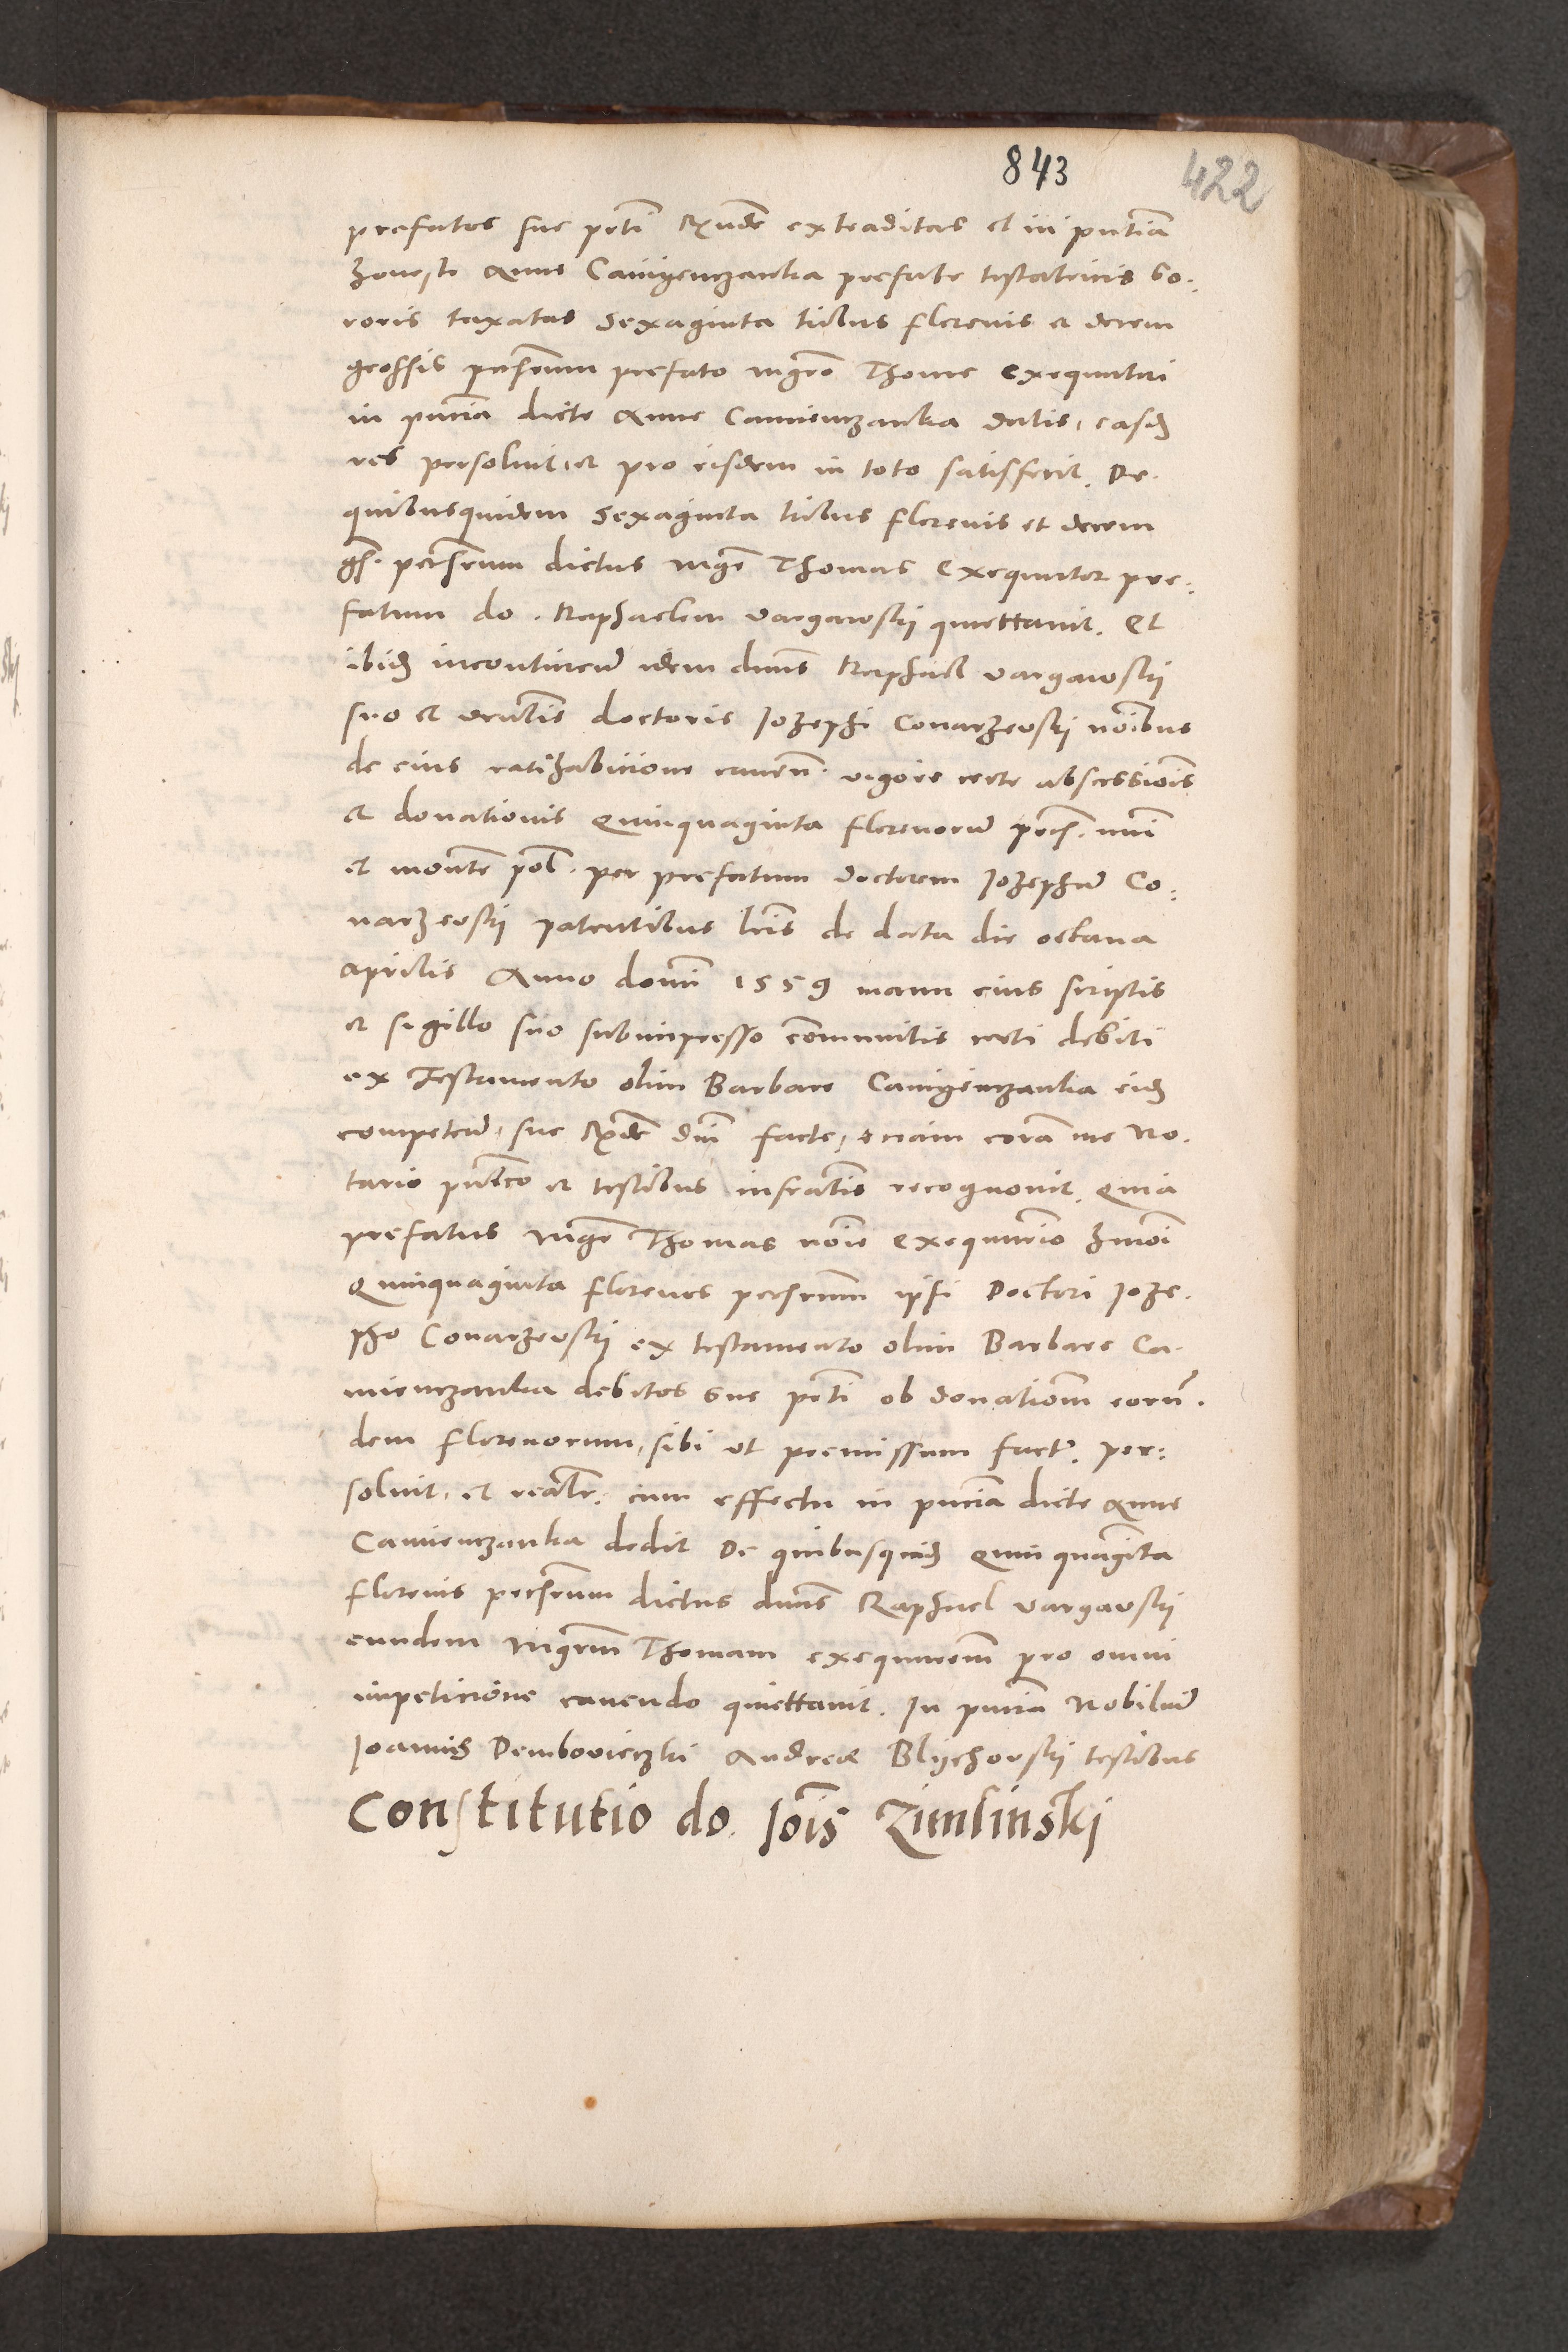 843 422
prefatos sue ptti Rvnde extraditas et in pntia
honeste Anne Camyenczanka prefate testatricis so-
roris taxatas Sexaginta tribus florenis et decem
grossis persoluen prefato mgro Thome exequutori
in pncia dicte Anne Camienczanka datis, easd
res persoluit, et pro eisdem in toto satisfecit. De
quibusquidem Sexaginta tribus florenis et decem
gs. dictus mgr Thomas exequutor pre-
fatum do. Raphaelem vargawskij quiettauit. Et
ibid incontinenti idem dnus Raphael vargawskij
suo et venelis doctoris Jozephi Conarzewskij noibus
de eius ratihabicione cauen. vigore certe abscessiois
et donationis Quinquaginta florenorum nui
et monte pol. per prefatum doctorem Jozephum Co-
narzewskij patentibus lris de data die octaua
aprilis Anno domi 1559 manu eius scriptis
et sigillo suo subimpresso communitis certi debiti
ex Testamento olim Barbare Camyenczanka eid
competen, sue Rnde dni facte, etiam coram me No-
tario publico et testibus infrattis recognouit, Quia
prefatus mgr Thomas noie exequutorio hmoi
Quinquaginta florenos ipsi Doctori Joze-
pho Conarzewskij ex testamento olim Barbare Ca-
mienczanka debitos sue ptti ob donationem eorun-
dem florenorum, sibi vt premissum fact. per-
soluit, et realr. cum effectu in pncia dicte Anne
Camienczanka dedit De quibusquid Quinquaginta
florenis dictus dnus Raphael vargawskij
eundem mgrum Thomam exequutorem pro omni
impeticione cauendo quiettauit. In pncia Nobilium
Joannis Dembowieczki Andreae Blychowskij testibus
Constitutio do. Jois Zimlinskj